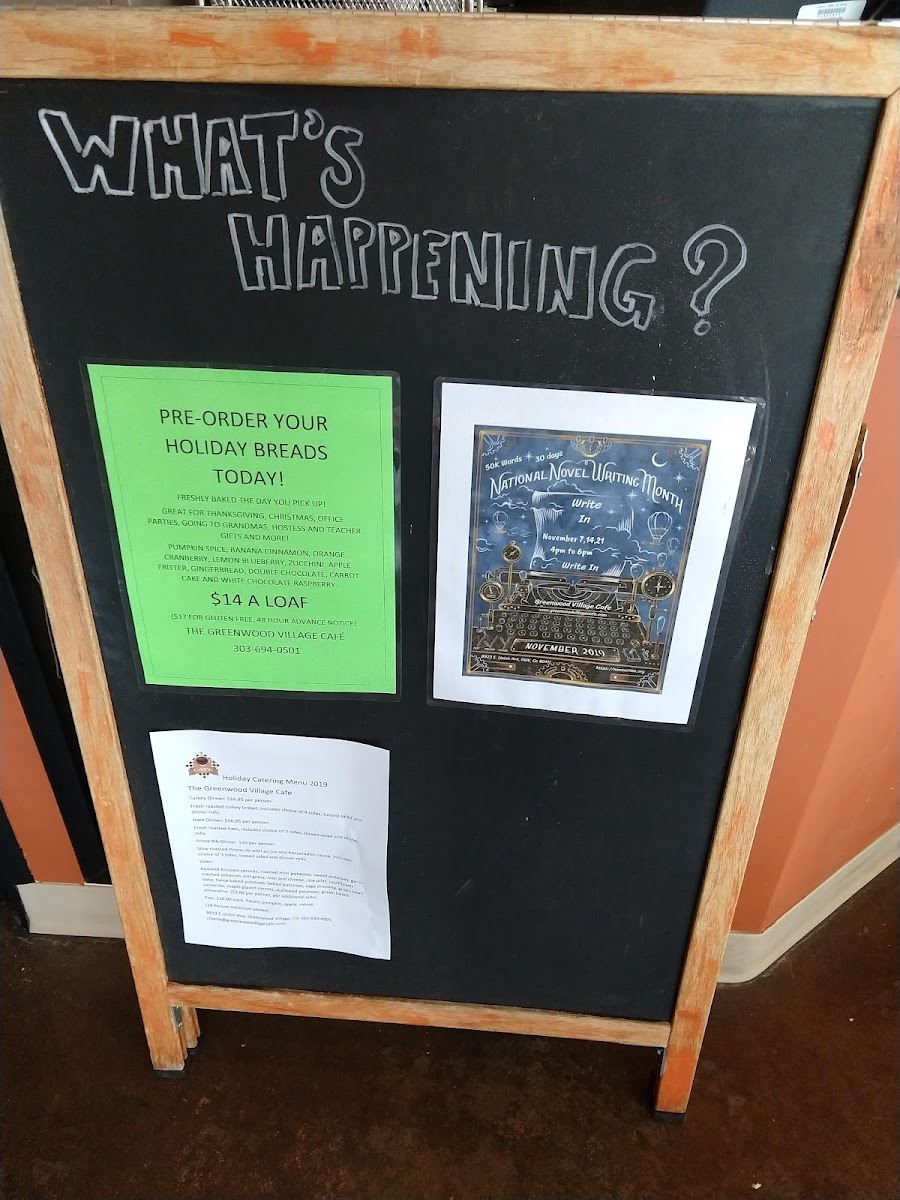 WHAT'S
HAPPENING?
PRE-ORDER YOUR
HOLIDAY BREADS
TODAY!
FRESHLY BAKED THE DAY YOU PICK UP!
GREAT FOR THANKSGIVING, CHRISTMAS, OFFICE
PARTIES, GOING TO GRANDMAS, HOSTESS AND TEACHER
GIFTS AND MORE!
PUMPKIN SPICE, BANANA CINNAMON, ORANGE-
CRANBERRY, LEMON BLUEBERRY, ZUCCHINI, APPLE
FRITTER, GINGERBREAD, DOUBLE CHOCOLATE, CARROT
CAKE AND WHITE CHOCOLATE RASPBERRY.
$14 A LOAF
($17 FOR GLUTEN FREE, 48 HOUR ADVANCE NOTICE)
THE GREENWOOD VILLAGE CAFÉ
303-694-0501
50K Words 30 days
NATIONAL NOVEL WRITING MONTH
Write
In
November 7,14,21
4pm to 6pm
Write In
Greenwood Village Cafe
NOVEMBER 2019
Holiday Catering Menu 2019
The Greenwood Village Cafe
Turkey Dinner: $16.95 per person
Fresh roasted turkey breast, includes choice of sides, tossed salad and
dinner rolls.
Ham Dinner: $16.95 per person
Fresh roasted ham, includes choice of 3 sides, tossed salad and dinner
rolls.
Prime Rib Dinner $30 per person
Slow roasted Prime rib with au jus and horseradish sauce, includes
choice of 3 sides, tossed salad and dinner rolls
Sides:
Roasted Brussels sprouts, roasted mini potatoes, sweet potatoes, garlic
mashed potatoes and gravy, mac and cheese, rice pilaf, cauliflower
bake, twice baked potatoes, baked potatoes, sage dressing, green bean
casserole, maple glazed carrots, scalloped potatoes, green beans
almondine. ($3.00 per person, per additional side)
Pies: $16.00 each Pecan, pumpkin, apple,
(10 Person minimum please)
8023 E Union Ave, Greenwood Village, CO 303-694-0501